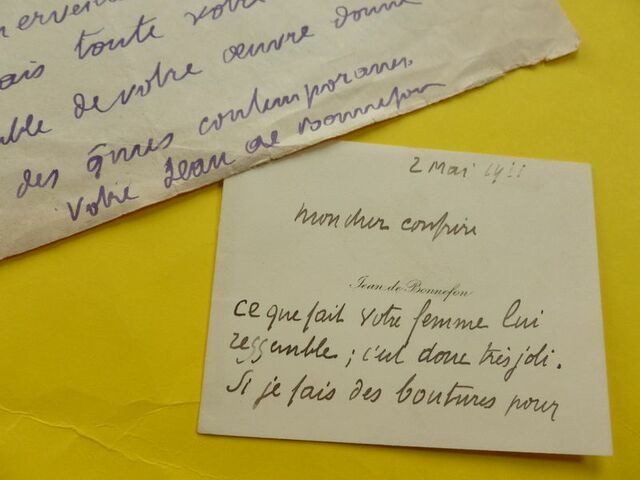 merveil
ais toute votre
ble de votre œuvre donne
des âmes contemporaines
Votre Jean de Bonnefon
2 Mai 1911
mon cher confrère
Jean de Bonnefon
ce que fait votre femme lui
ressemble ; c'est donc très joli.
Si je fais des boutures pour